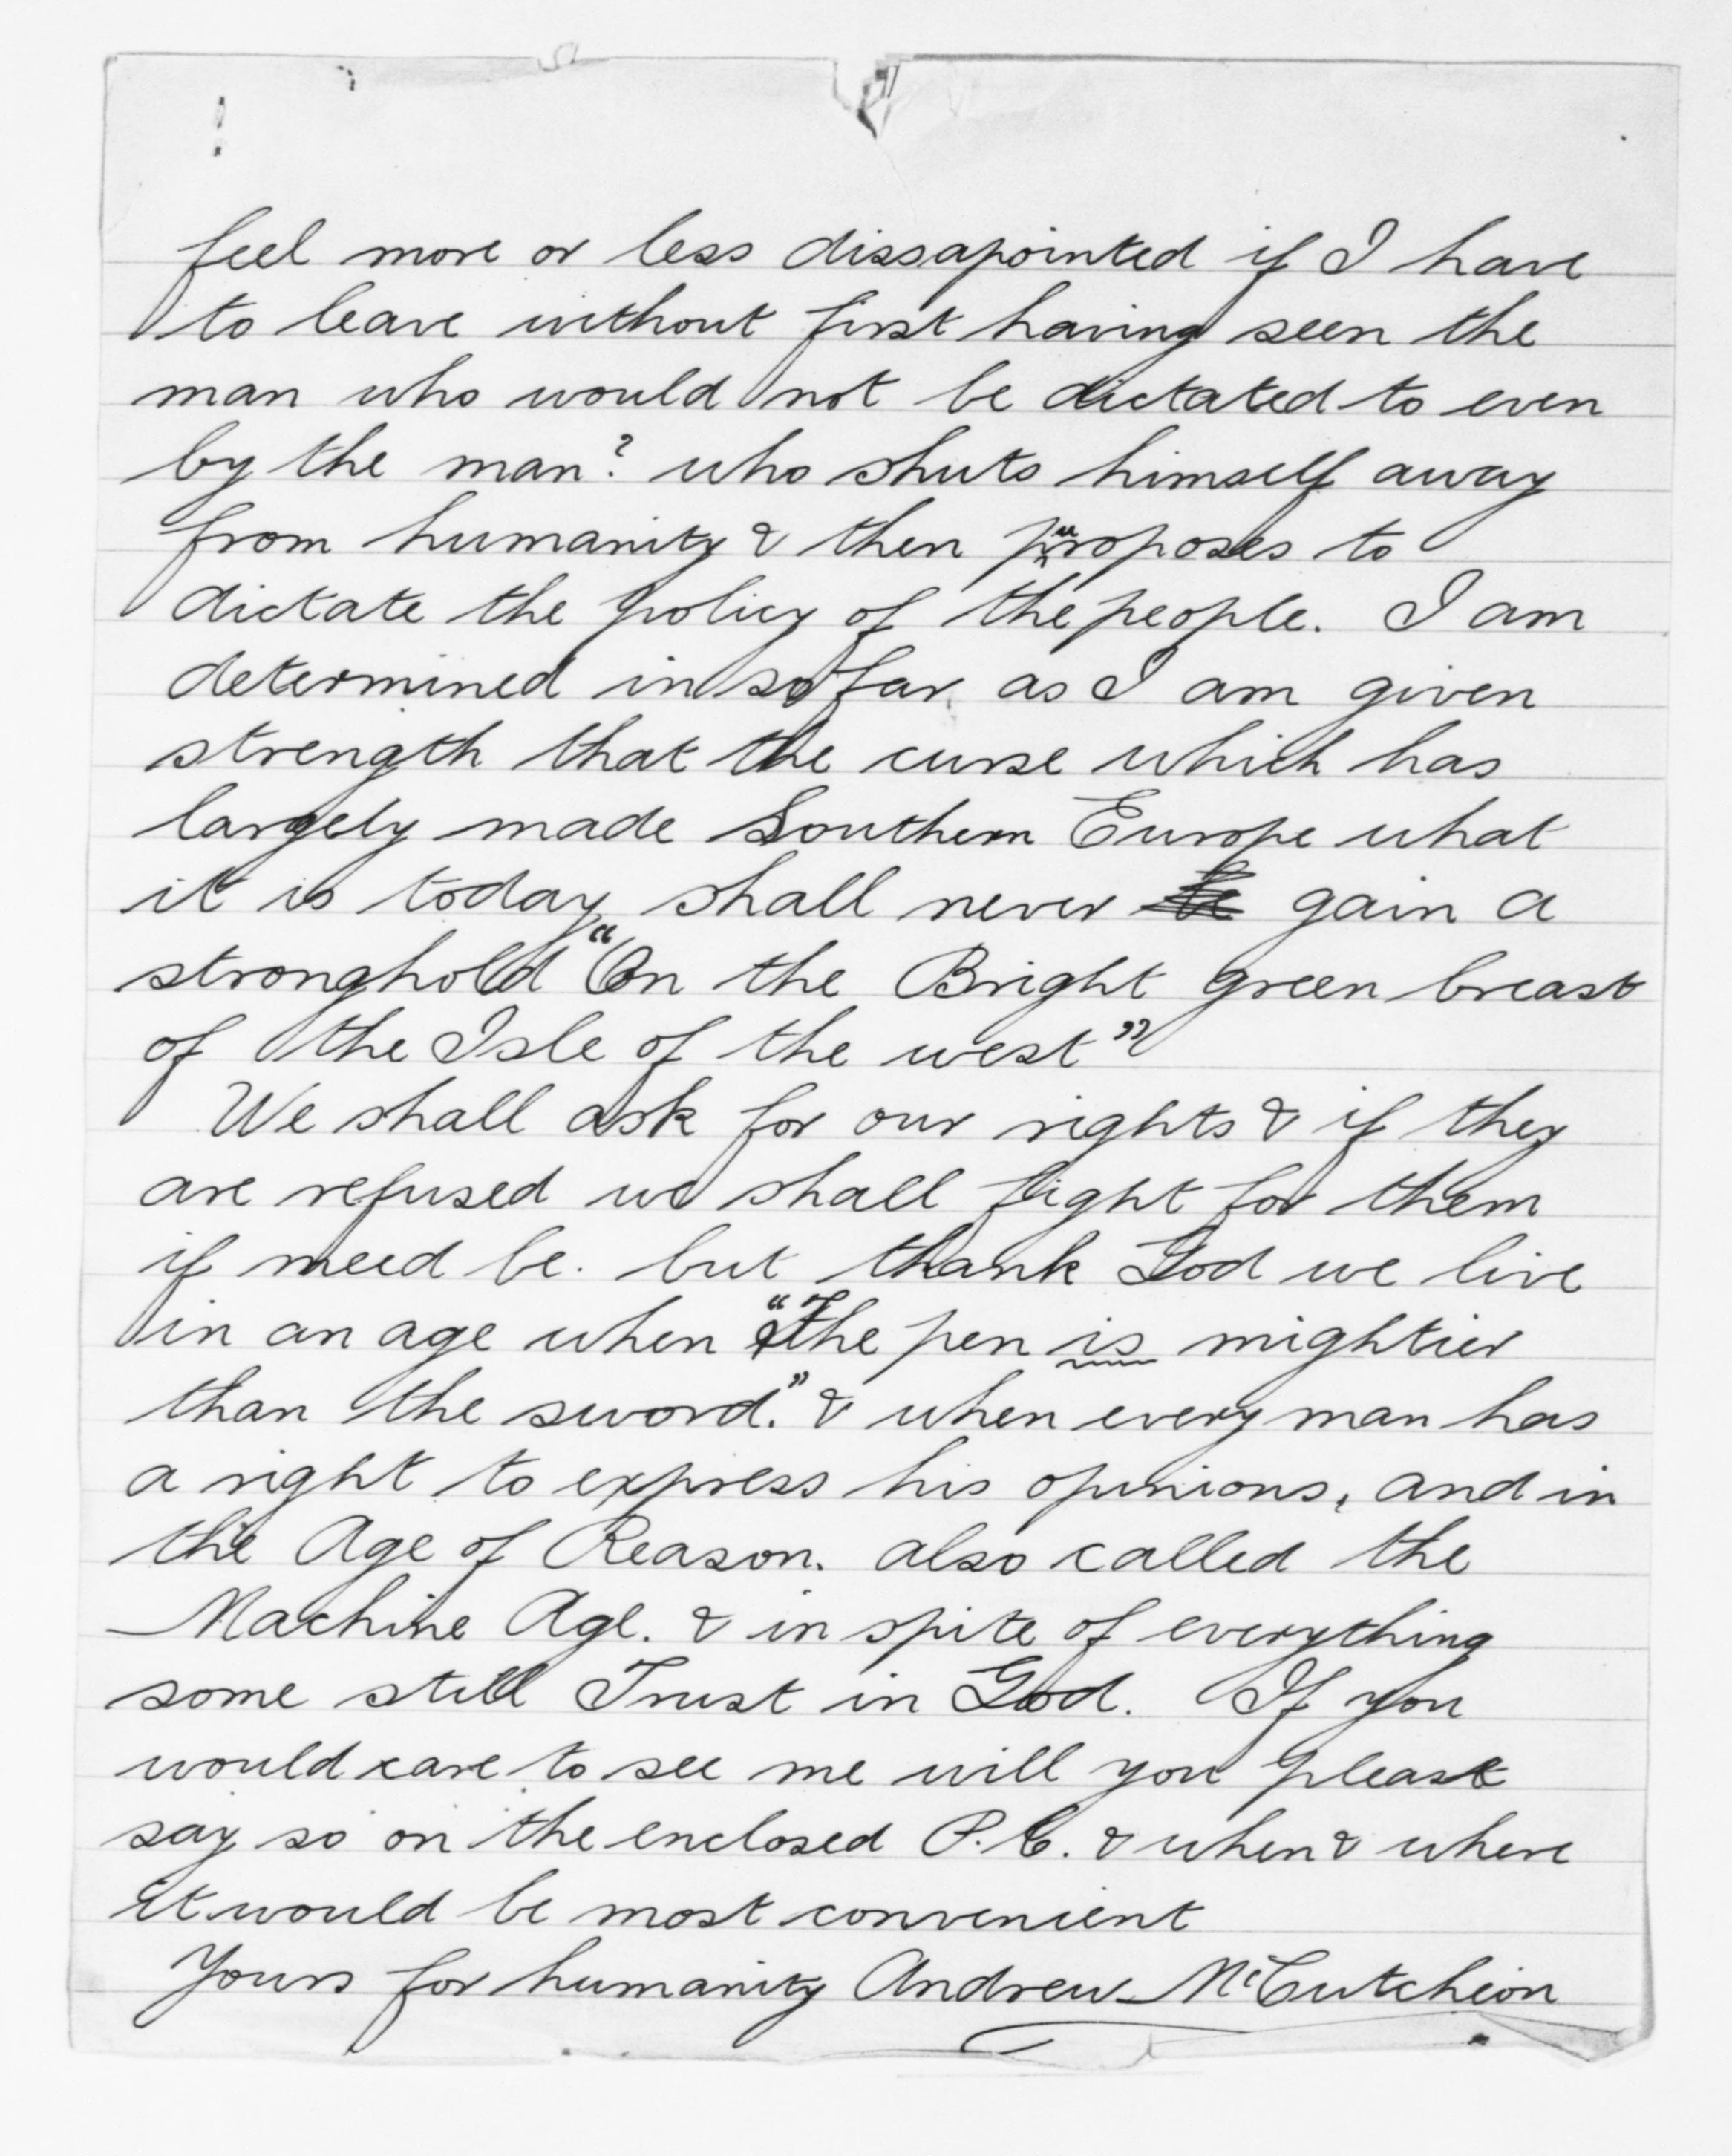 feel more or less dissapointed if I have
to leave without first having seen the
man who would not be dictated to even
by the man? who shuts himself away
from humanity & then proposes to
dictate the policy of the people. I am
determined in so far as I am given
strength that the curse which has
largely made Southern Europe what
it is today, shall never be gain a
stronghold "On the Bright green breast
of the Isle of the west"
We shall ask for our rights & if they
are refused we shall fight for them
if need be. but thank God we live
in an age when "The pen is mightier
than the sword." & when every man has
a right to express his opinions, and in
the Age of Reason. also called the
Machine Age. & in spite of everything
some still Trust in God. If you
would care to see me will you please
say so on the enclosed P.C. & when & where
it would be most convenient
Yours for humanity Andrew McCutcheon